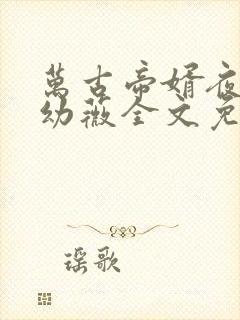 萬古帝婿夜
幼薇全文免
瑶歌